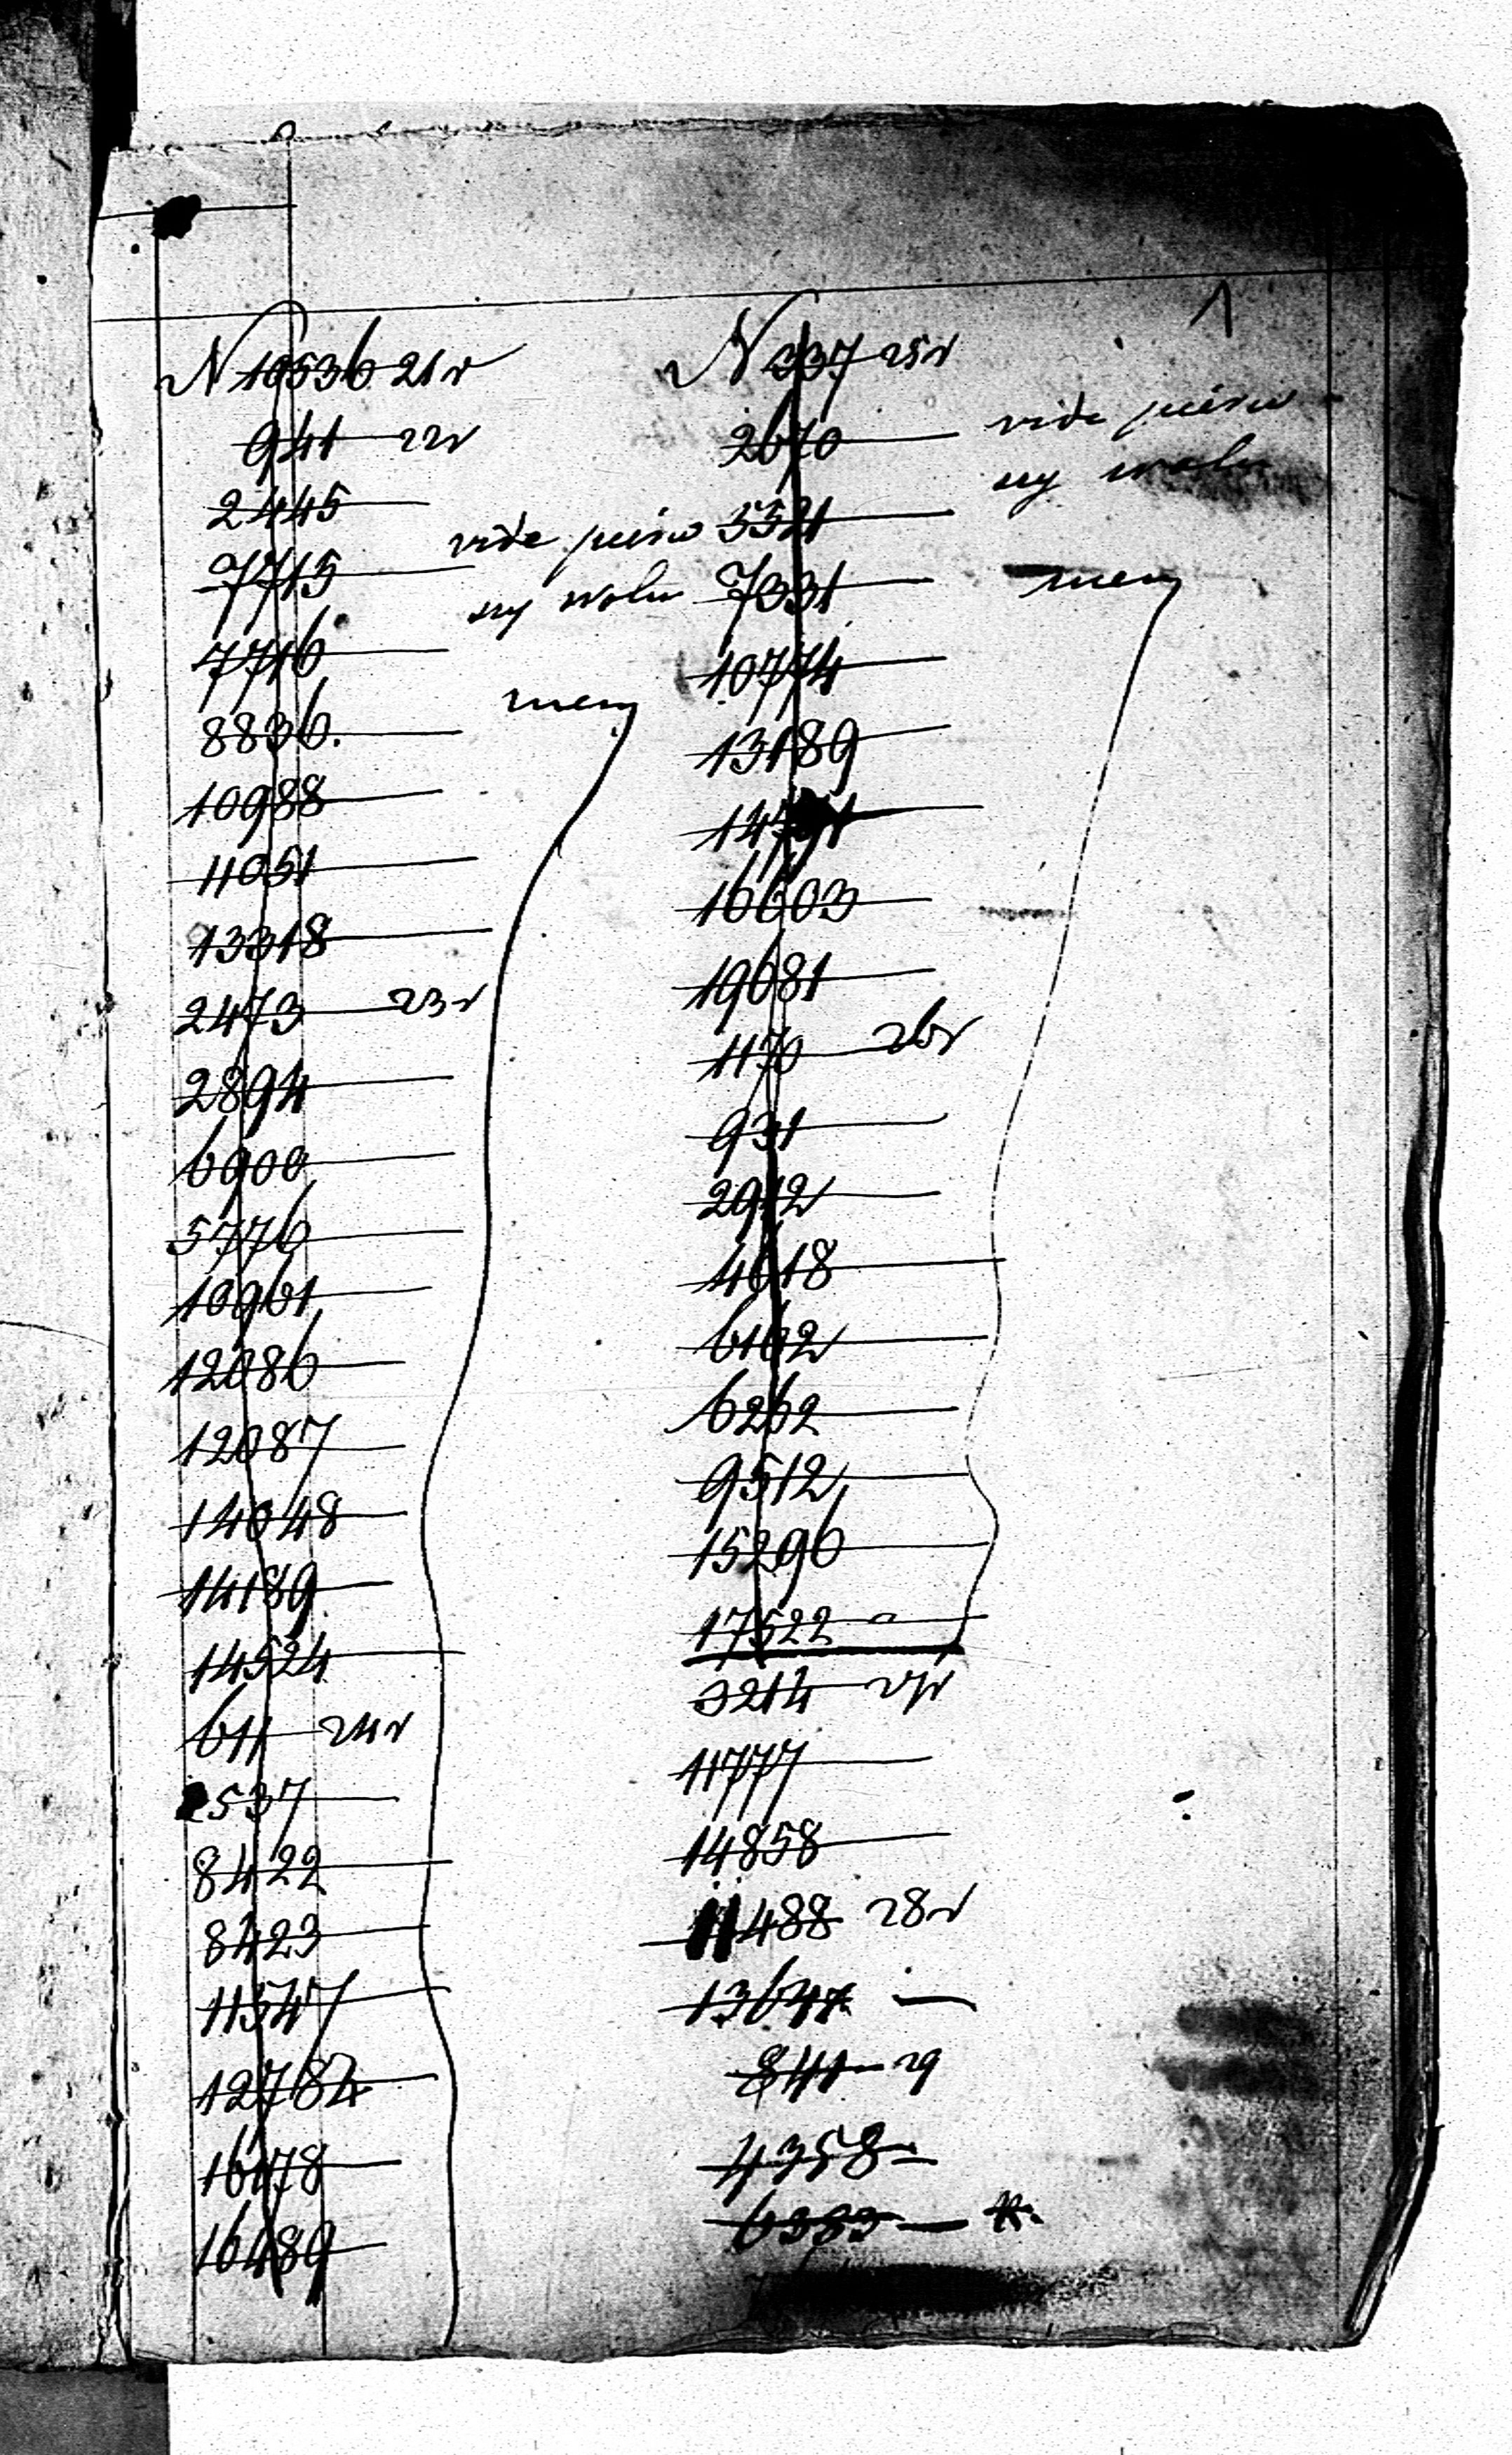 1
N 10536 21 r
941 22 r
2445
7715
7716
8836.
10988
11051
13318
2473 23 r
2894
6900
5776
10961
12086
12087
14048
14189
14524
611 24 r
2537
8422
8423
11547
12784
16178
16489
vide
N 337 25 r
2670
5521
7331
10774
13189
14791
16603
19081
1170 26 r
931
2912
4618
6162
6262
9512
15296
17522
3214 27 r
11777
14858
11488 28 r
13647
841 29
4358
6383
vide